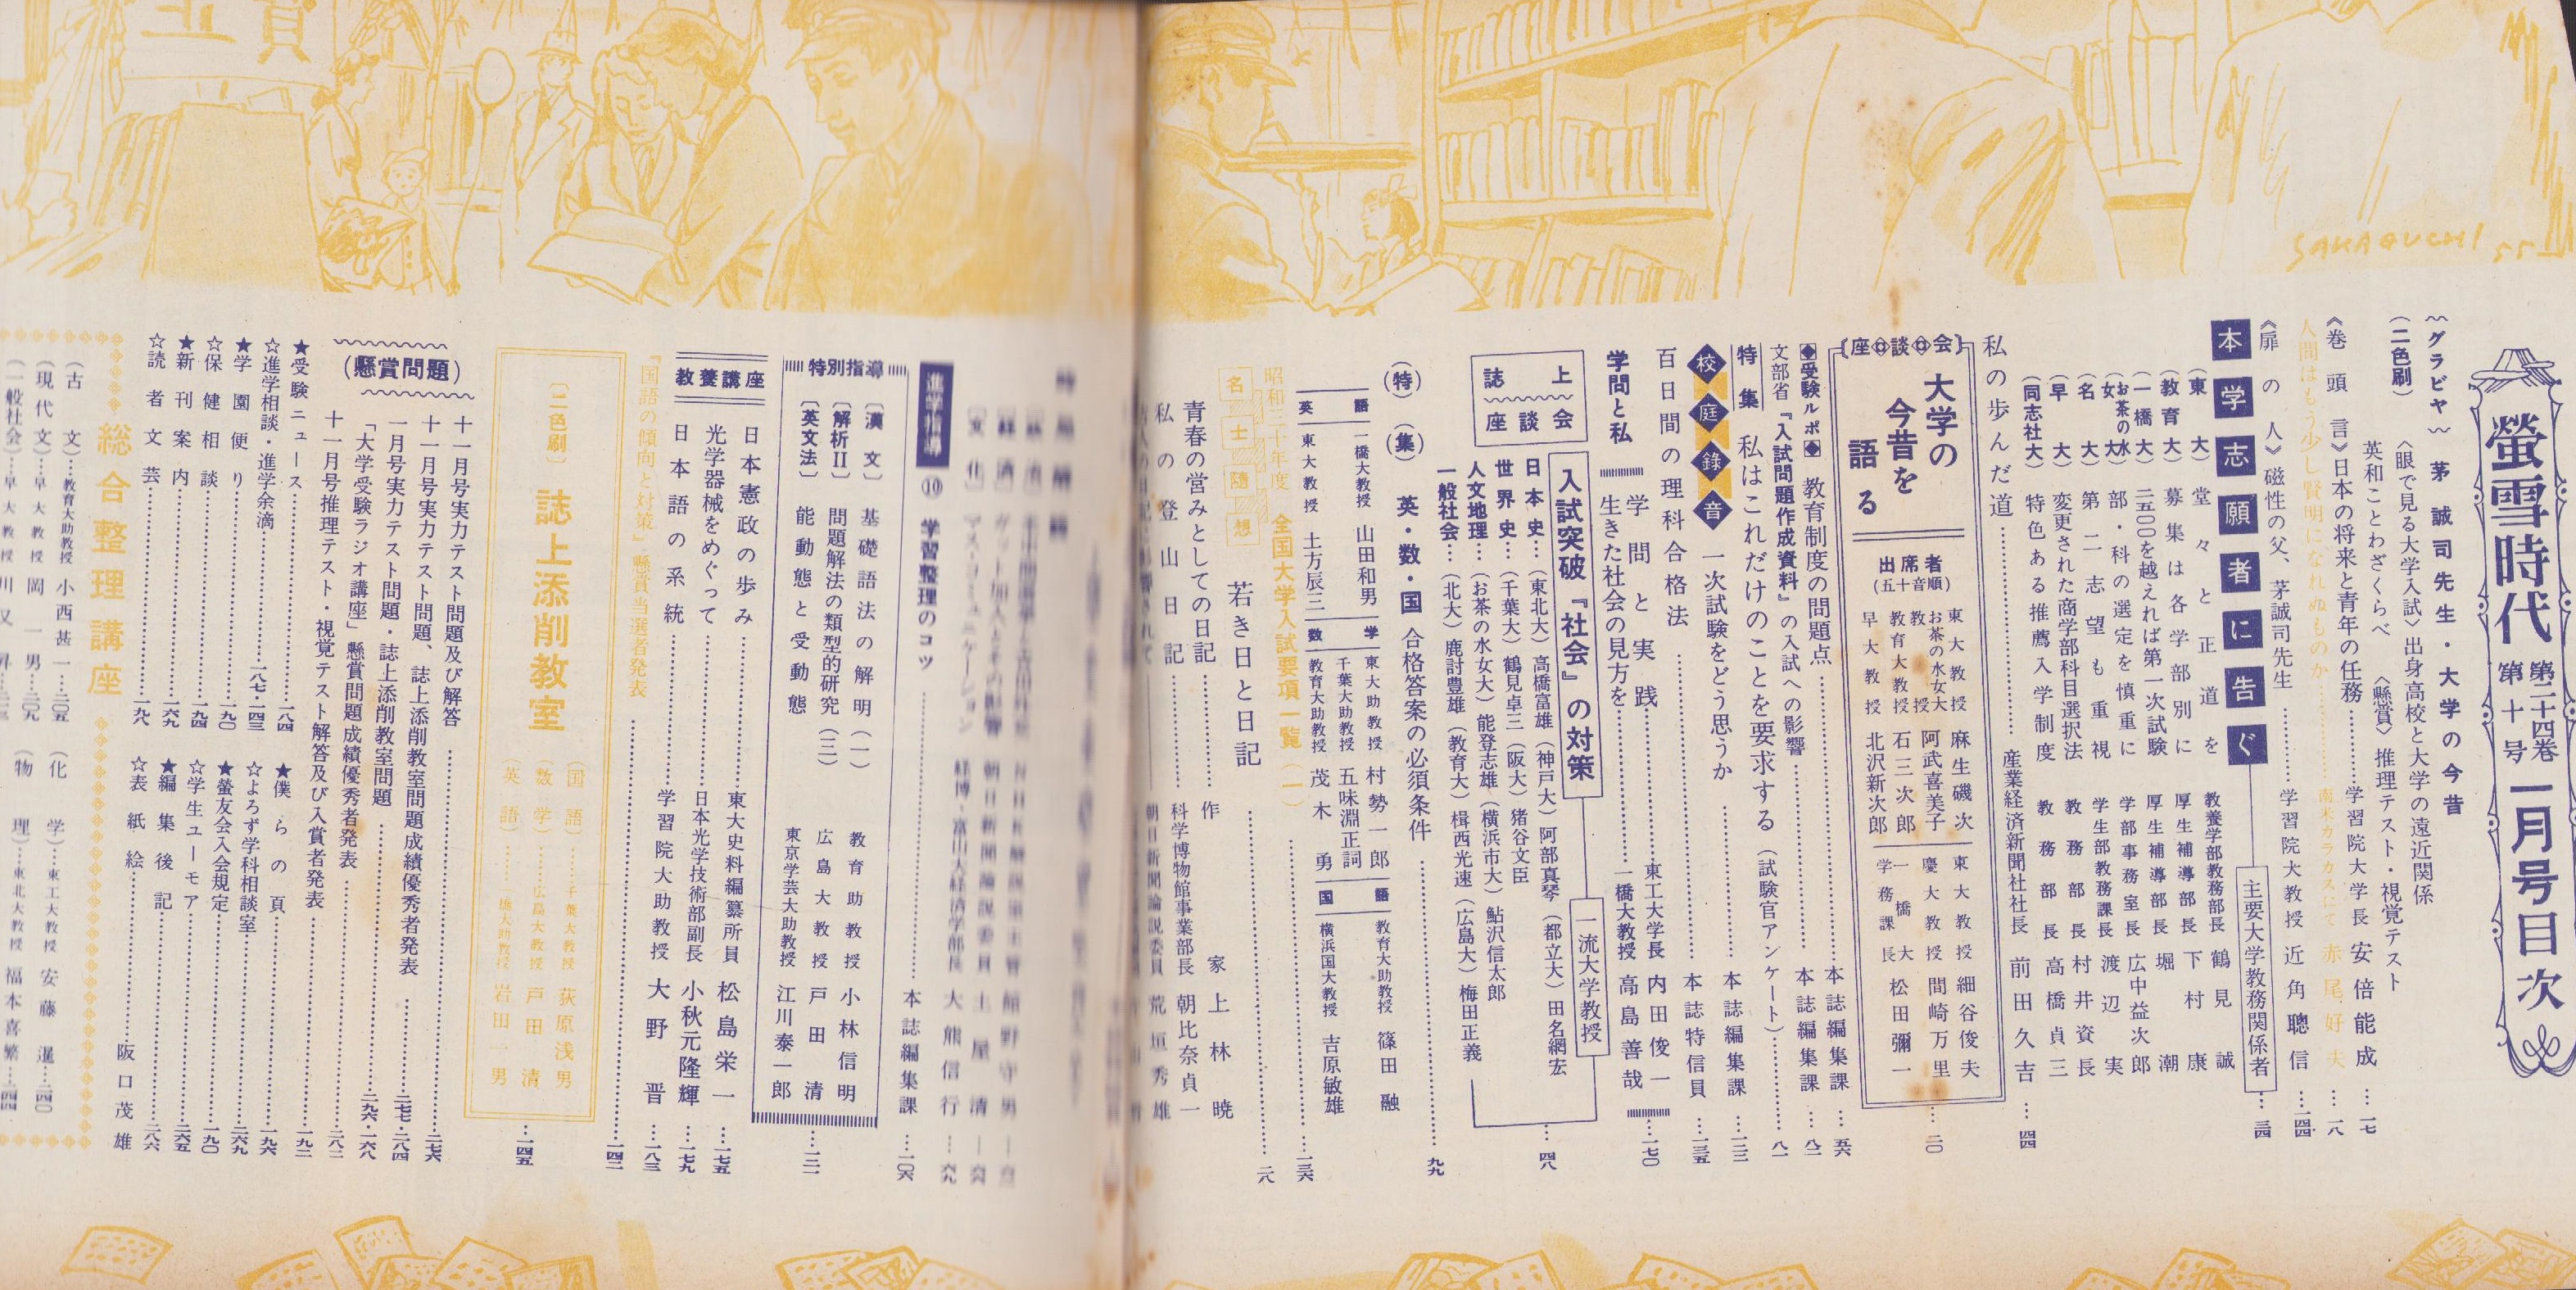 螢雪時代 第二十四巻 第十号 一月号目次
〰グラビヤ〰 茅誠司先生・大学の今昔
(二色刷) 〈眼で見る大学入試〉出身高校と大学の遠近関係
英和ことわざくらべ 〈懸賞〉推理テスト・視覚テスト
《巻頭言》日本の将来と青年の任務………学習院大学長 安倍能成…一七
人間はもう少し賢明になれぬものか………南米カラカスにて 赤尾好夫…一八
《扉の人》磁性の父、茅誠司先生………学習院大教授 近角聰信…一四四
本学志願者に告ぐ 主要大学教務関係者…三四
(東大) 堂々と正道を 教養学部教務部長 鶴見誠
(教育大) 募集は各学部別に 厚生補導部長 下村康
(一橋大) 二五〇〇を越えれば第一次試験 厚生補導部長 堀潮
(お茶の水女大) 部・科の選定を慎重に 学部事務室長 広中益次郎
(名大) 第二志望も重視 学生部教務課長 渡辺実
(早大) 変更された商学部科目選択法 教務部長 村井資長
(同志社大) 特色ある推薦入学制度 教務部長 高橋貞三
私の歩んだ道………産業経済新聞社社長 前田久吉…四四
座談会
大学の今昔を語る…二〇
出席者
(五十音順)
東大教授 麻生磯次
お茶の水女大教授 阿武喜美子
教育大教授 石三次郎
早大教授 北沢新次郎
東大教授 細谷俊夫
慶大教授 間崎万里
一橋大学務課長 松田彌一
◆受験ルポ◆ 教育制度の問題点………本誌編集課…五六
文部省『入試問題作成資料』の入試への影響………本誌編集課…八二
特集 私はこれだけのことを要求する(試験官アンケート)………八一
校庭録音 一次試験をどう思うか………本誌編集課…一三二
百日間の理科合格法………本誌特信員…一三五
学問と私 学問と実践………東工大学長 内田俊一
生きた社会の見方を………一橋大教授 高島善哉…一七〇
誌上座談会
入試突破『社会』の対策 一流大学教授…四八
日本史…(東北大)高橋富雄(神戸大)阿部真琴(都立大)田名網宏
世界史…(千葉大)鶴見卓三(阪大)猪谷文臣
人文地理…(お茶の水女大)能登志雄(横浜市大)鮎沢信太郎
一般社会…(北大)鹿討豊雄(教育大)楫西光速(広島大)梅田正義
(特)(集) 英・数・国 合格答案の必須条件………九九
語 一橋大教授 山田和男
英 東大教授 土方辰三
学 東大助教授 村勢一郎
千葉大助教授 五味淵正詞
数 教育大助教授 茂木勇
語 教育大助教授 篠田融
国 横浜国大教授 吉原敏雄
昭和三十年度 全国大学入試要項一覧(一)………一三六
名士随想 若き日と日記………二八
青春の営みとしての日記………作家 上林暁
私の登山日記………科学博物館事業部長 朝比奈貞一
朝日新聞論説委員 荒垣秀雄
進学指導 ⑩ 学習整理のコツ………本誌編集課…一〇六
特別指導…一二一
〔漢文〕 基礎語法の解明(一) 教育助教授 小林信明
〔解析Ⅱ〕 問題解法の類型的研究(三) 広島大教授 戸田清
〔英文法〕 能動態と受動態 東京学芸大助教授 江川泰一郎
教養講座
日本憲政の歩み………東大史料編纂所員 松島栄一…一七五
光学器械をめぐって………日本光学技術部副長 小秋元隆輝…一七九
日本語の系統………学習院大助教授 大野晋…一八三
『国語の傾向と対策』懸賞当選者発表………一四二
〔二色刷〕 誌上添削教室…一四五
(国語)………千葉大教授 荻原浅男
(数学)………広島大教授 戸田清
(英語)………一橋大助教授 岩田一男
(懸賞問題)
十一月号実力テスト問題及び解答………二七六
十一月号実力テスト問題、誌上添削教室問題成績優秀者発表………二七七・二八四
一月号実力テスト問題・誌上添削教室問題………二九六・一六八
「大学受験ラジオ講座」懸賞問題成績優秀者発表………二八二
十一月号推理テスト・視覚テスト解答及び入賞者発表………一九二
★受験ニュース………一八四
☆進学相談・進学余滴………一八七・一四三
★学園便り………一九〇
☆保健相談………一九四
★新刊案内………一六九
☆読者文芸………一六九
★僕らの頁………一九六
☆よろず学科相談室………二六九
★螢友会入会規定………一九〇
☆学生ユーモア………二六五
★編集後記………二八六
☆表紙絵………阪口茂雄
総合整理講座
(古文)…教育大助教授 小西甚一…二〇五
(現代文)…早大教授 岡一男…二〇九
(一般社会)…早大教授 川又昇
(化学)…東工大教授 安藤暹…二四〇
(物理)…東北大教授 福本喜繁…二四四
SAKAGUCHI 55